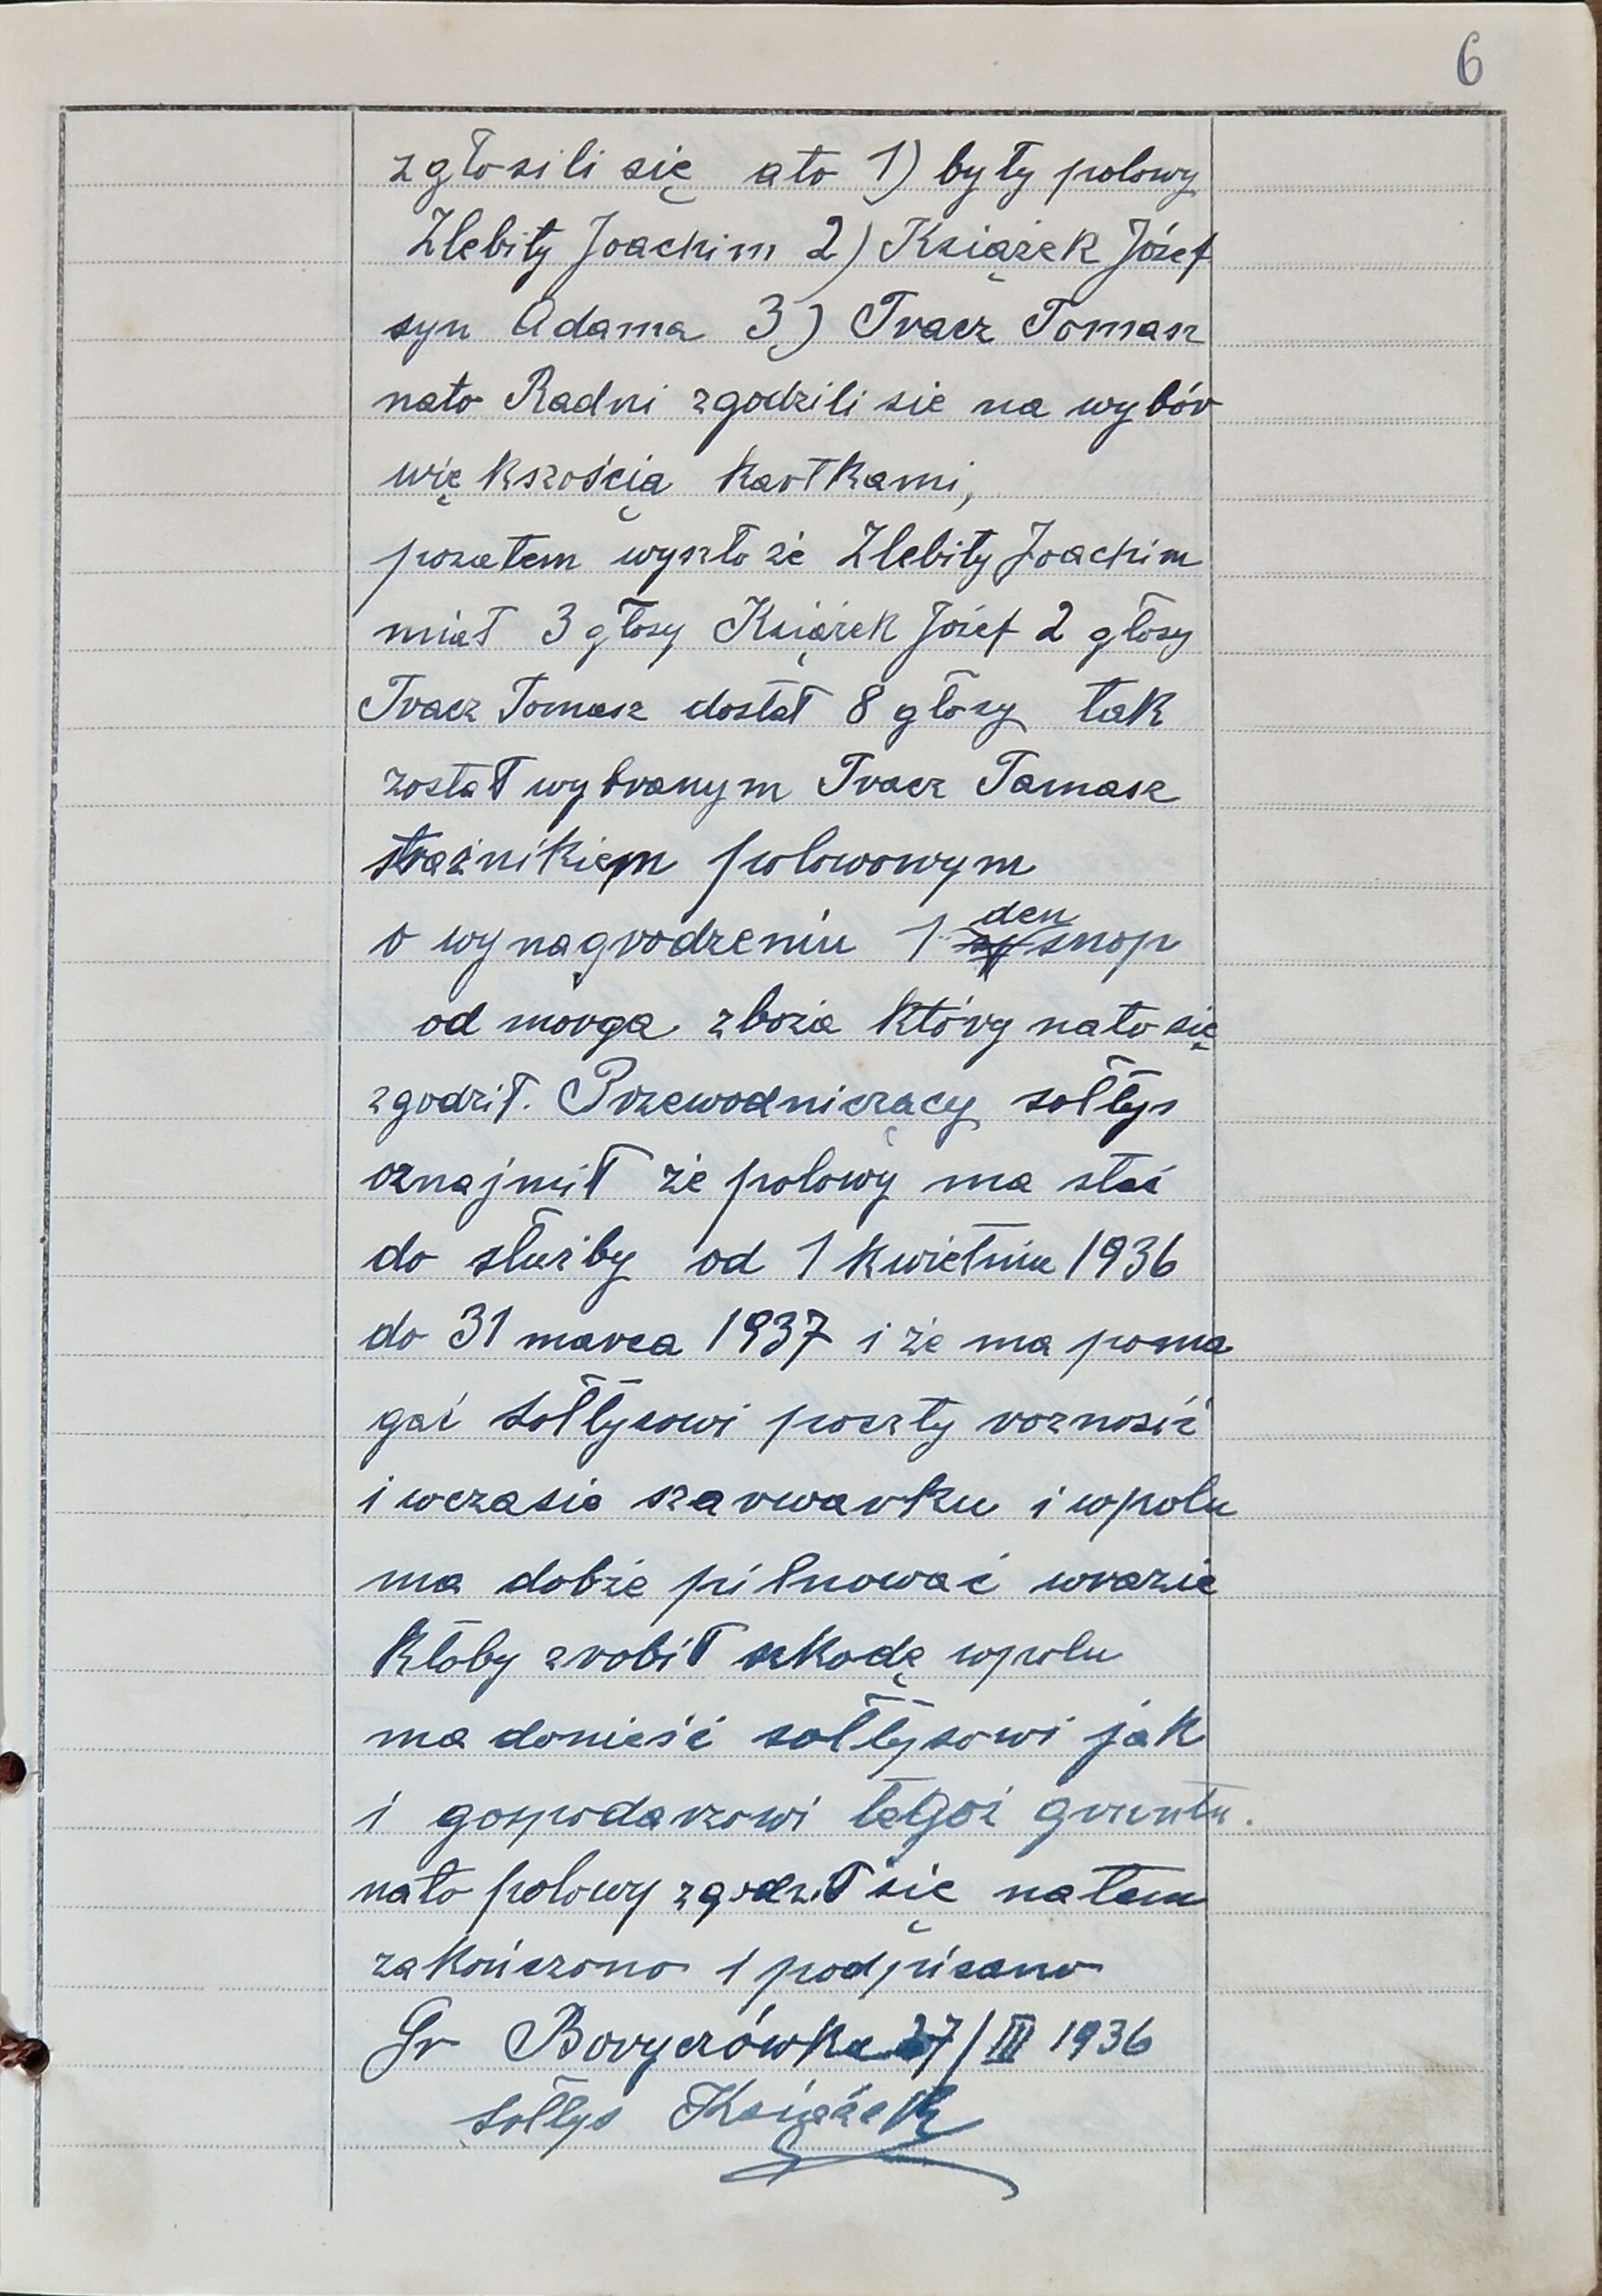 6
zgłosili się ato 1) były polowy
Zlebity Joachim 2) Książek Józef
syn Adama 3) Tracz Tomasz
nato Radni zgodzili sie na wybór
większościa kartkami,
pozatem wyszło że Zlebity Joachim
miał 3 głosy Książek Józef 2 głosy
Tracz Tomasz dostał 8 głosy tak
został wybranym Tracz Tamasz
strażnikiem polowowym
o wynagrodzeniu 1 den snop
od morga zboża który nato się
zgodził. Przewodniczący sołtys
oznajmił że polowy ma stać
do służby od 1 kwietnia 1936
do 31 marca 1937 i że ma poma
gać sołtysowi poczty roznosić
i wczasie szarwarku i wpolu
ma dobże pilnować wrazie
któby zrobił szkodę wpolu
ma donieść sołtysowi jak
i gospodarzowi tegoż gruntu.
nato polowy zgodził się natem
zakończono i podpisano
Gr Boryczówka 27/III 1936
sołtys Książek